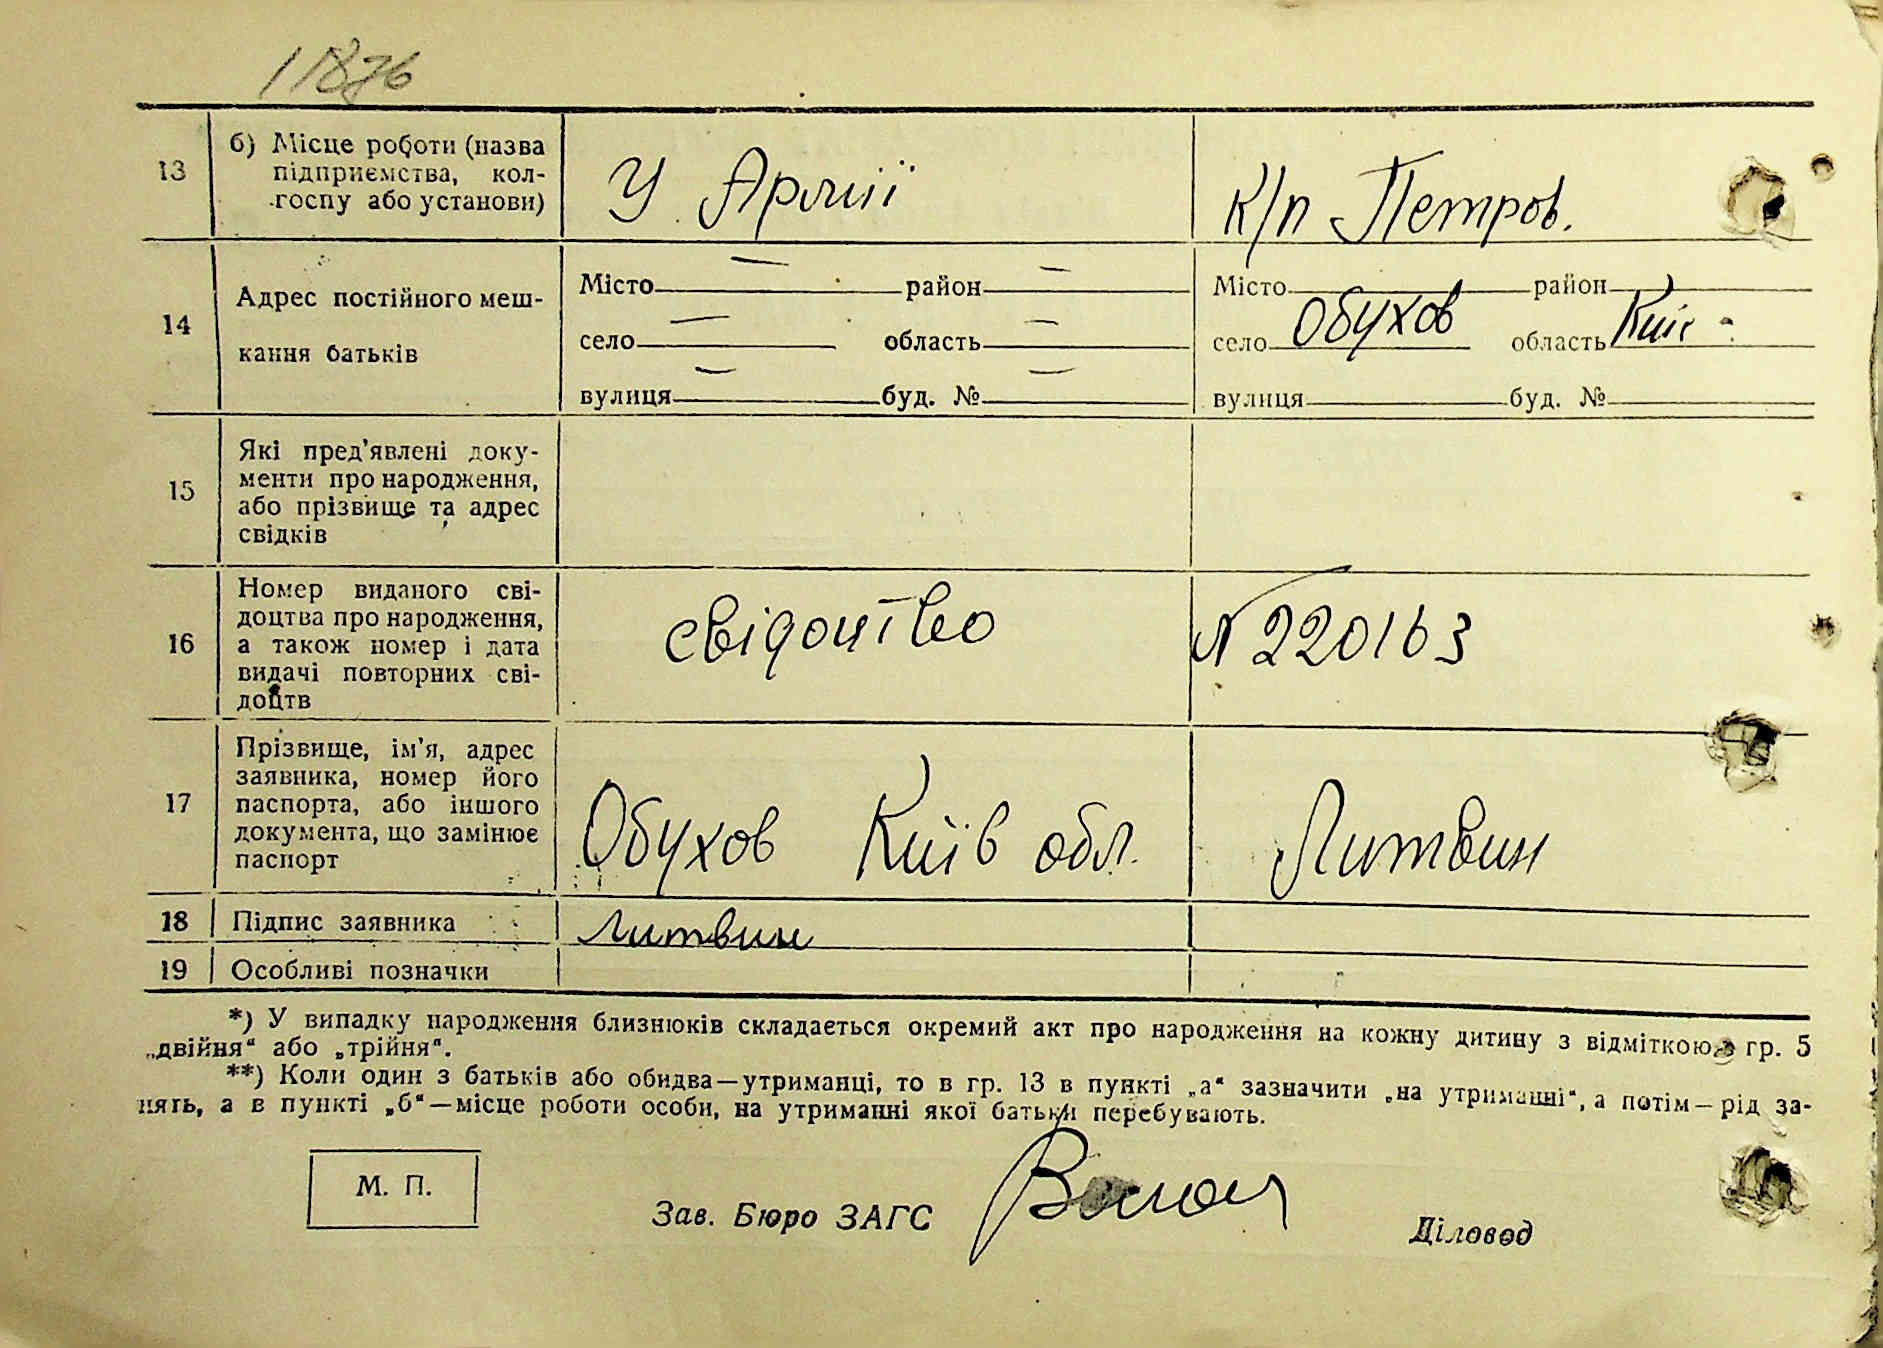 11876
13
б) Місце роботи (назва
підприємства, кол-
госпу або установи)
У Армії
К/п Петров.
14
Адрес постійного меш-
кання батьків
Місто — район —
село — область —
вулиця — буд. № —
Місто район
село Обухов область Київ
вулиця буд. №
15
Які пред'явлені доку-
менти про народження,
або прізвище та адрес
свідків
16
Номер виданого сві-
доцтва про народження,
а також номер і дата
видачі повторних сві-
доцтв
свідоцтво
№ 220163
17
Прізвище, ім'я, адрес
заявника, номер його
паспорта, або іншого
документа, що замінює
паспорт
Обухов Київ обл.
Литвин
18 Підпис заявника
Литвин
19 Особливі позначки
*) У випадку народження близнюків складається окремий акт про народження на кожну дитину з відміткою в гр. 5
„двійня“ або „трійня“.
**) Коли один з батьків або обидва—утриманці, то в гр. 13 в пункті „а“ зазначити „на утриманні“, а потім—рід за-
нять, а в пункті „б“—місце роботи особи, на утриманні якої батьки перебувають.
М. П.
Зав. Бюро ЗАГС
Діловод